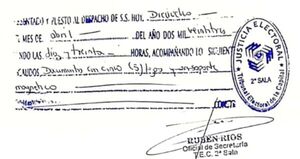 PUESTO AL DESPACHO DE S.S. HOY, Dieciocho
MES DE abril DEL AÑO DOS MIL
NDO LAS diez Treinta HORAS, ACOMPAÑANDO LO SIGUIENTE
CAUDOS, Documento con cinco (5) fojas y un soporte
magnetico
CONSTE
RUBEN RIOS
Oficial de Secretaría
T.E.C. 2ª Sala
JUSTICIA ELECTORAL
Tribunal Electoral de la Capital
2ª SALA